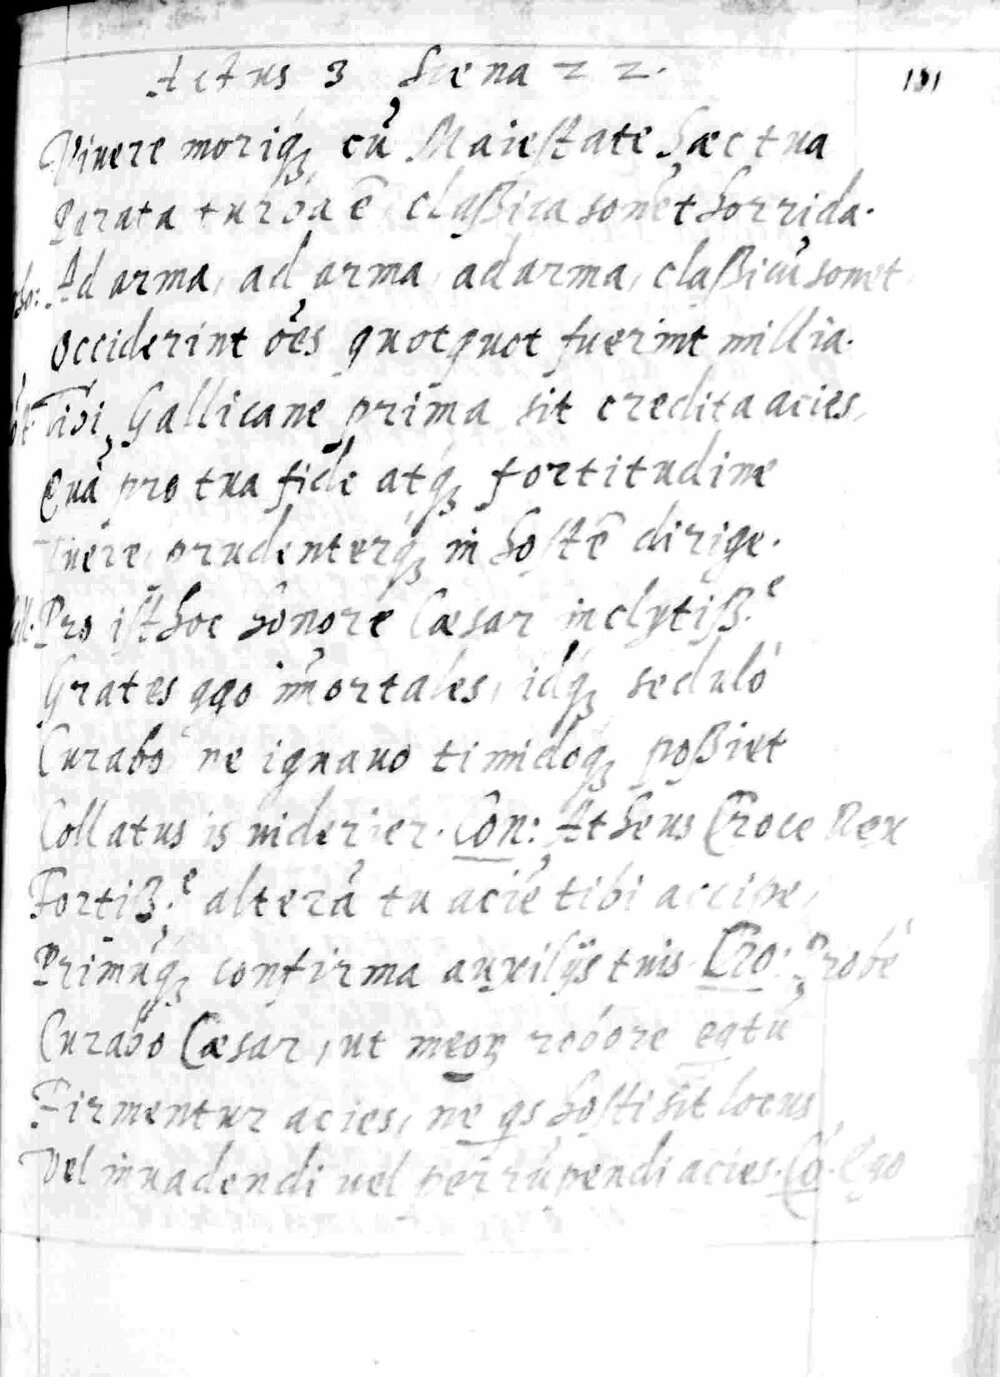 Actus 3 Scena 22. 151
Viuere moriq́ꝫ cũ Maiestate hæc tua
Parata turba ẽ, claßica sonẽt horrida.
ho: Ad arma, ad arma, ad arma, claßicũ sonet
Occiderint oẽs quotquot fuerint millia.
Tibi Gallicane prima sit credita acies,
Quã pro tua fide atq́ꝫ fortitudine
Tuere, prudenterq́ꝫ in hostẽ dirige.
Gall. Pro isthoc honore Cæsar inclytiß.e
Grates ago im̃ortales, idq́ꝫ sedulò
Curabo ne ignauo timidoq́ꝫ poßiet
Collatus is uiderier. Con: Atheus Croce Rex
Fortiß.e alterã tu aciẽ tibi accipe,
Primũq́ꝫ confirma auxilijs tuis. Cro: Probè
Curabo Cæsar, ut meoꝝ robore eqtũ
Firmentur acies, ne qs hosti sit locus
Vel inuadendi uel perrũpendi acies. Cõ. Ego